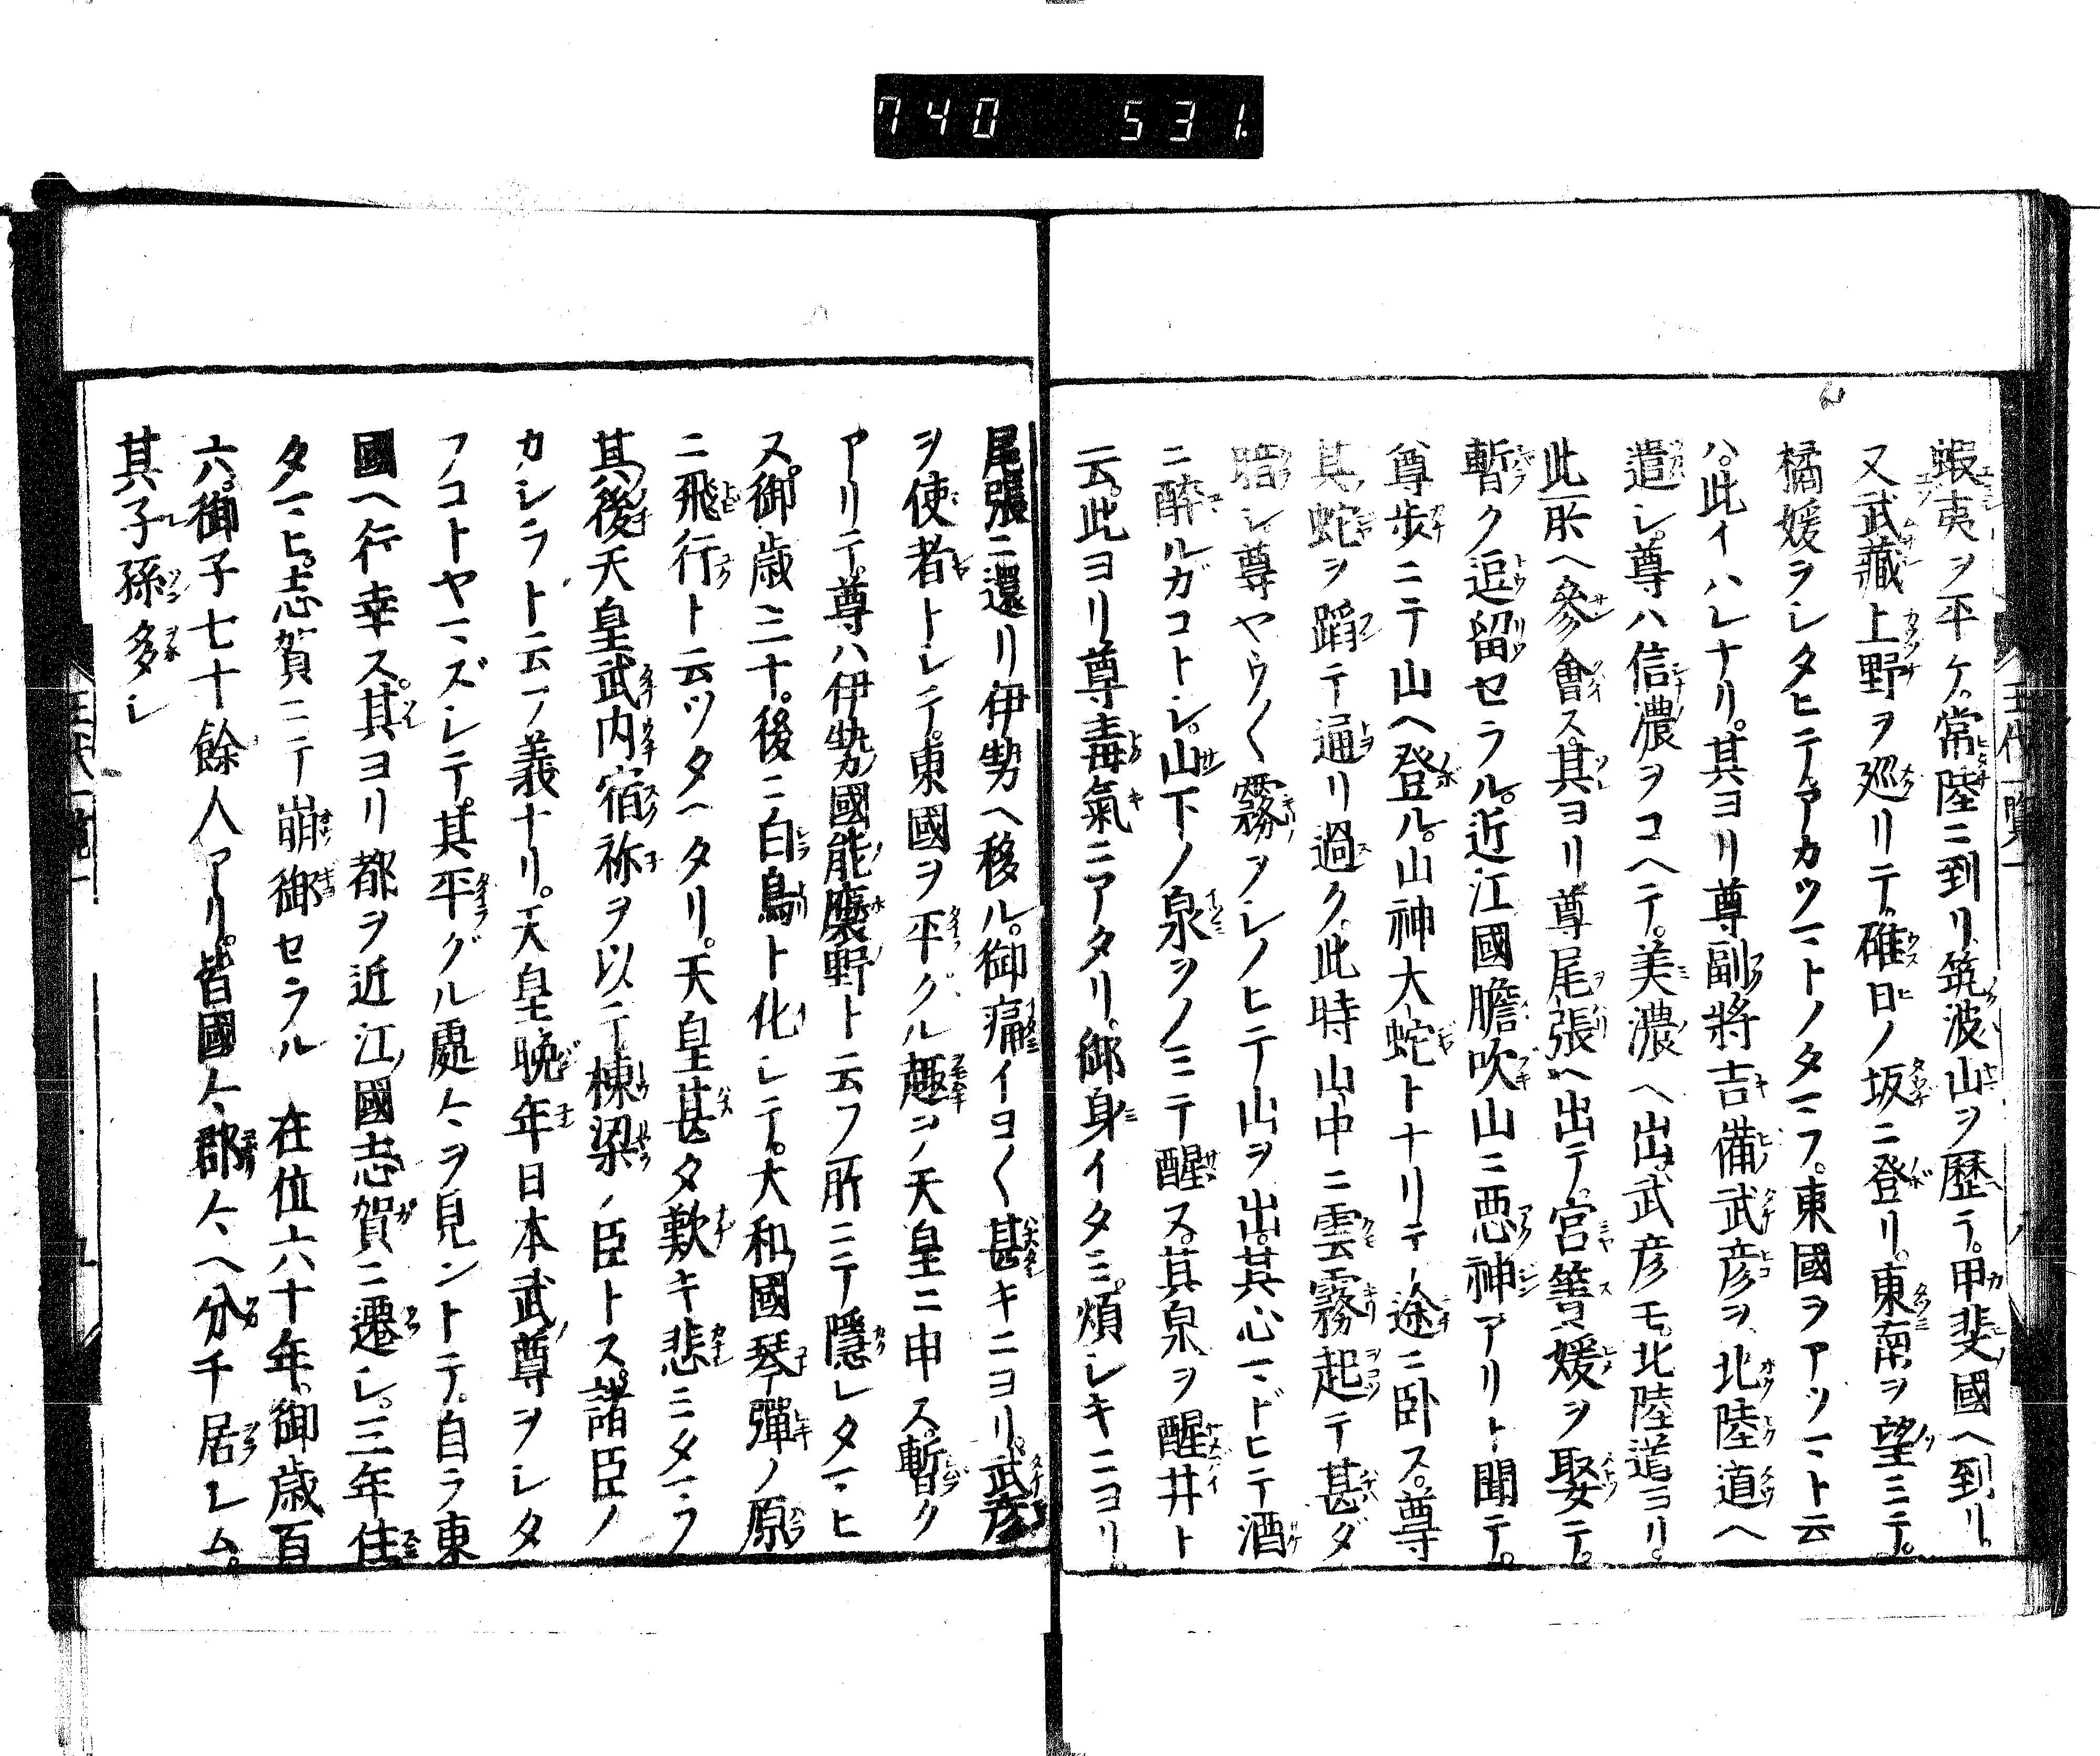 740 531.
蝦夷ヲ平ケ。常陸ニ到リ。筑波山ヲ歴テ。甲斐國ヘ到リ。
又武藏上野ヲ廵リテ。碓日ノ坂ニ登リ。東南ヲ望ミテ。
橘媛ヲシタヒテ。アカツマトノタマフ。東國ヲアツマト云
ハ。此イハレナリ。其ヨリ尊副將吉備武彦ヲ、北陸道ヘ
遣シ。尊ハ信濃ヲコヘテ。美濃ヘ出。武彦モ。北陸道ヨリ。
此所ヘ參會ス。其ヨリ尊尾張ヘ出テ。宮簀媛ヲ娶テ。
暫ク逗留セラル。近江國膽吹山ニ惡神アリト聞テ。
尊歩ニテ山ヘ登ル。山神大蛇トナリテ途ニ卧ス。尊
其蛇ヲ蹈テ通リ過ク。此時山中ニ雲霧起テ甚ダ
暗シ尊ヤウ〱霧ヲシノヒテ山ヲ出。其心マドヒテ酒
ニ醉ルガコトシ。山下ノ泉ヲノミテ醒ス。其泉ヲ醒井ト
云。此ヨリ尊毒氣ニアタリ。御身イタミ。煩シキニヨリ。
尾張ニ還リ伊勢ヘ移ル。御痛イヨ〱甚キニヨリ。武彦
ヲ使者トシテ。東國ヲ平グル趣ヲ天皇ニ申ス。暫ク
アリテ。尊ハ伊勢國能褒野ト云フ所ニテ隱レタマヒ
ヌ。御歳三十。後ニ白鳥ト化シテ。大和國琴彈ノ原
ニ飛行ト云ツタヘタリ。天皇甚タ歎キ悲ミタマフ
其後天皇武内宿祢ヲ以テ棟梁ノ臣トス。諸臣ノ
カシラト云フ義ナリ。天皇晩年日本武尊ヲシタ
フコトヤマズシテ。其平グル處々ヲ見ントテ。自ラ東
國ヘ行幸ス。其ヨリ都ヲ近江國志賀ニ遷シ。三年住
タマヒ。志賀ニテ崩御セラル 在位六十年。御歳百
六。御子七十餘人アリ。皆國々郡々ヘ分チ居シム。
其子孫多シ
王代一覽一
九